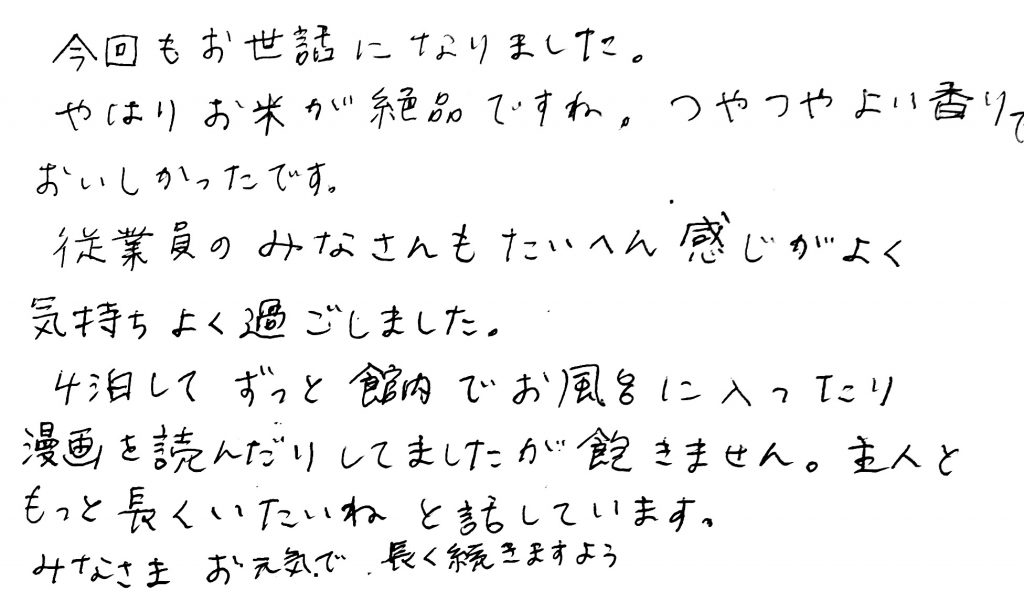 今回もお世話になりました。
やはりお米が絶品ですね。つやつやよい香りで
おいしかったです。
従業員のみなさんもたいへん感じがよく
気持ちよく過ごしました。
4泊してずっと館内でお風呂に入ったり
漫画を読んだりしてましたが飽きません。主人と
もっと長くいたいねと話しています。
みなさまお元気で、長く続きますよう